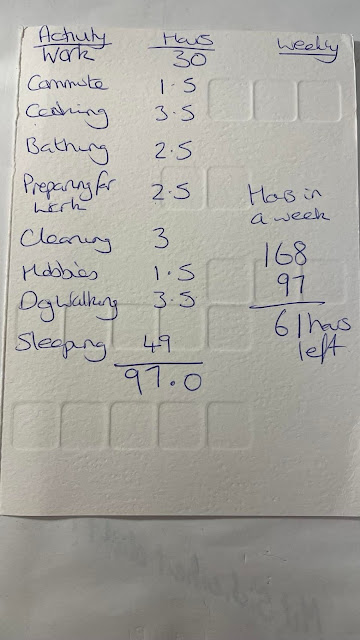 Activity Hours Weekly
Work 30
Commute 1.5
Cooking 3.5
Bathing 2.5
Preparing for work 2.5
Cleaning 3
Hobbies 1.5
Dog Walking 3.5
Sleeping 49
97.0
Hours in
a week
168
97
61 hours
left